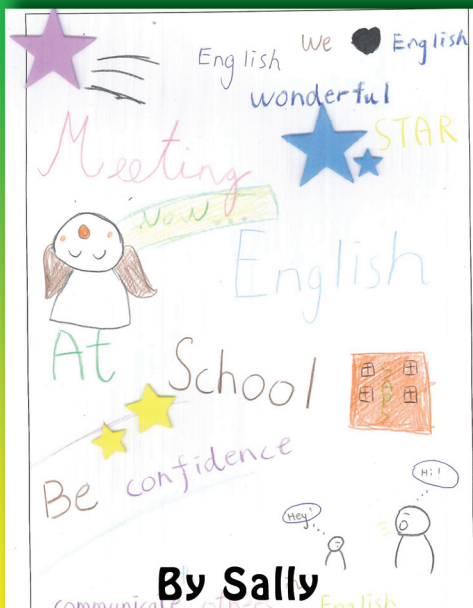 We ♥ English
English
wonderful
STAR
Meeting
Now...
English
At
School
Be confidence
Hi!
Hey!
By Sally
communicate others
English